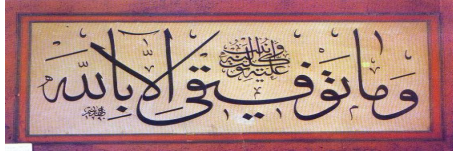 وما توفيقى الا بالله
عليه توكلت واليه انيب